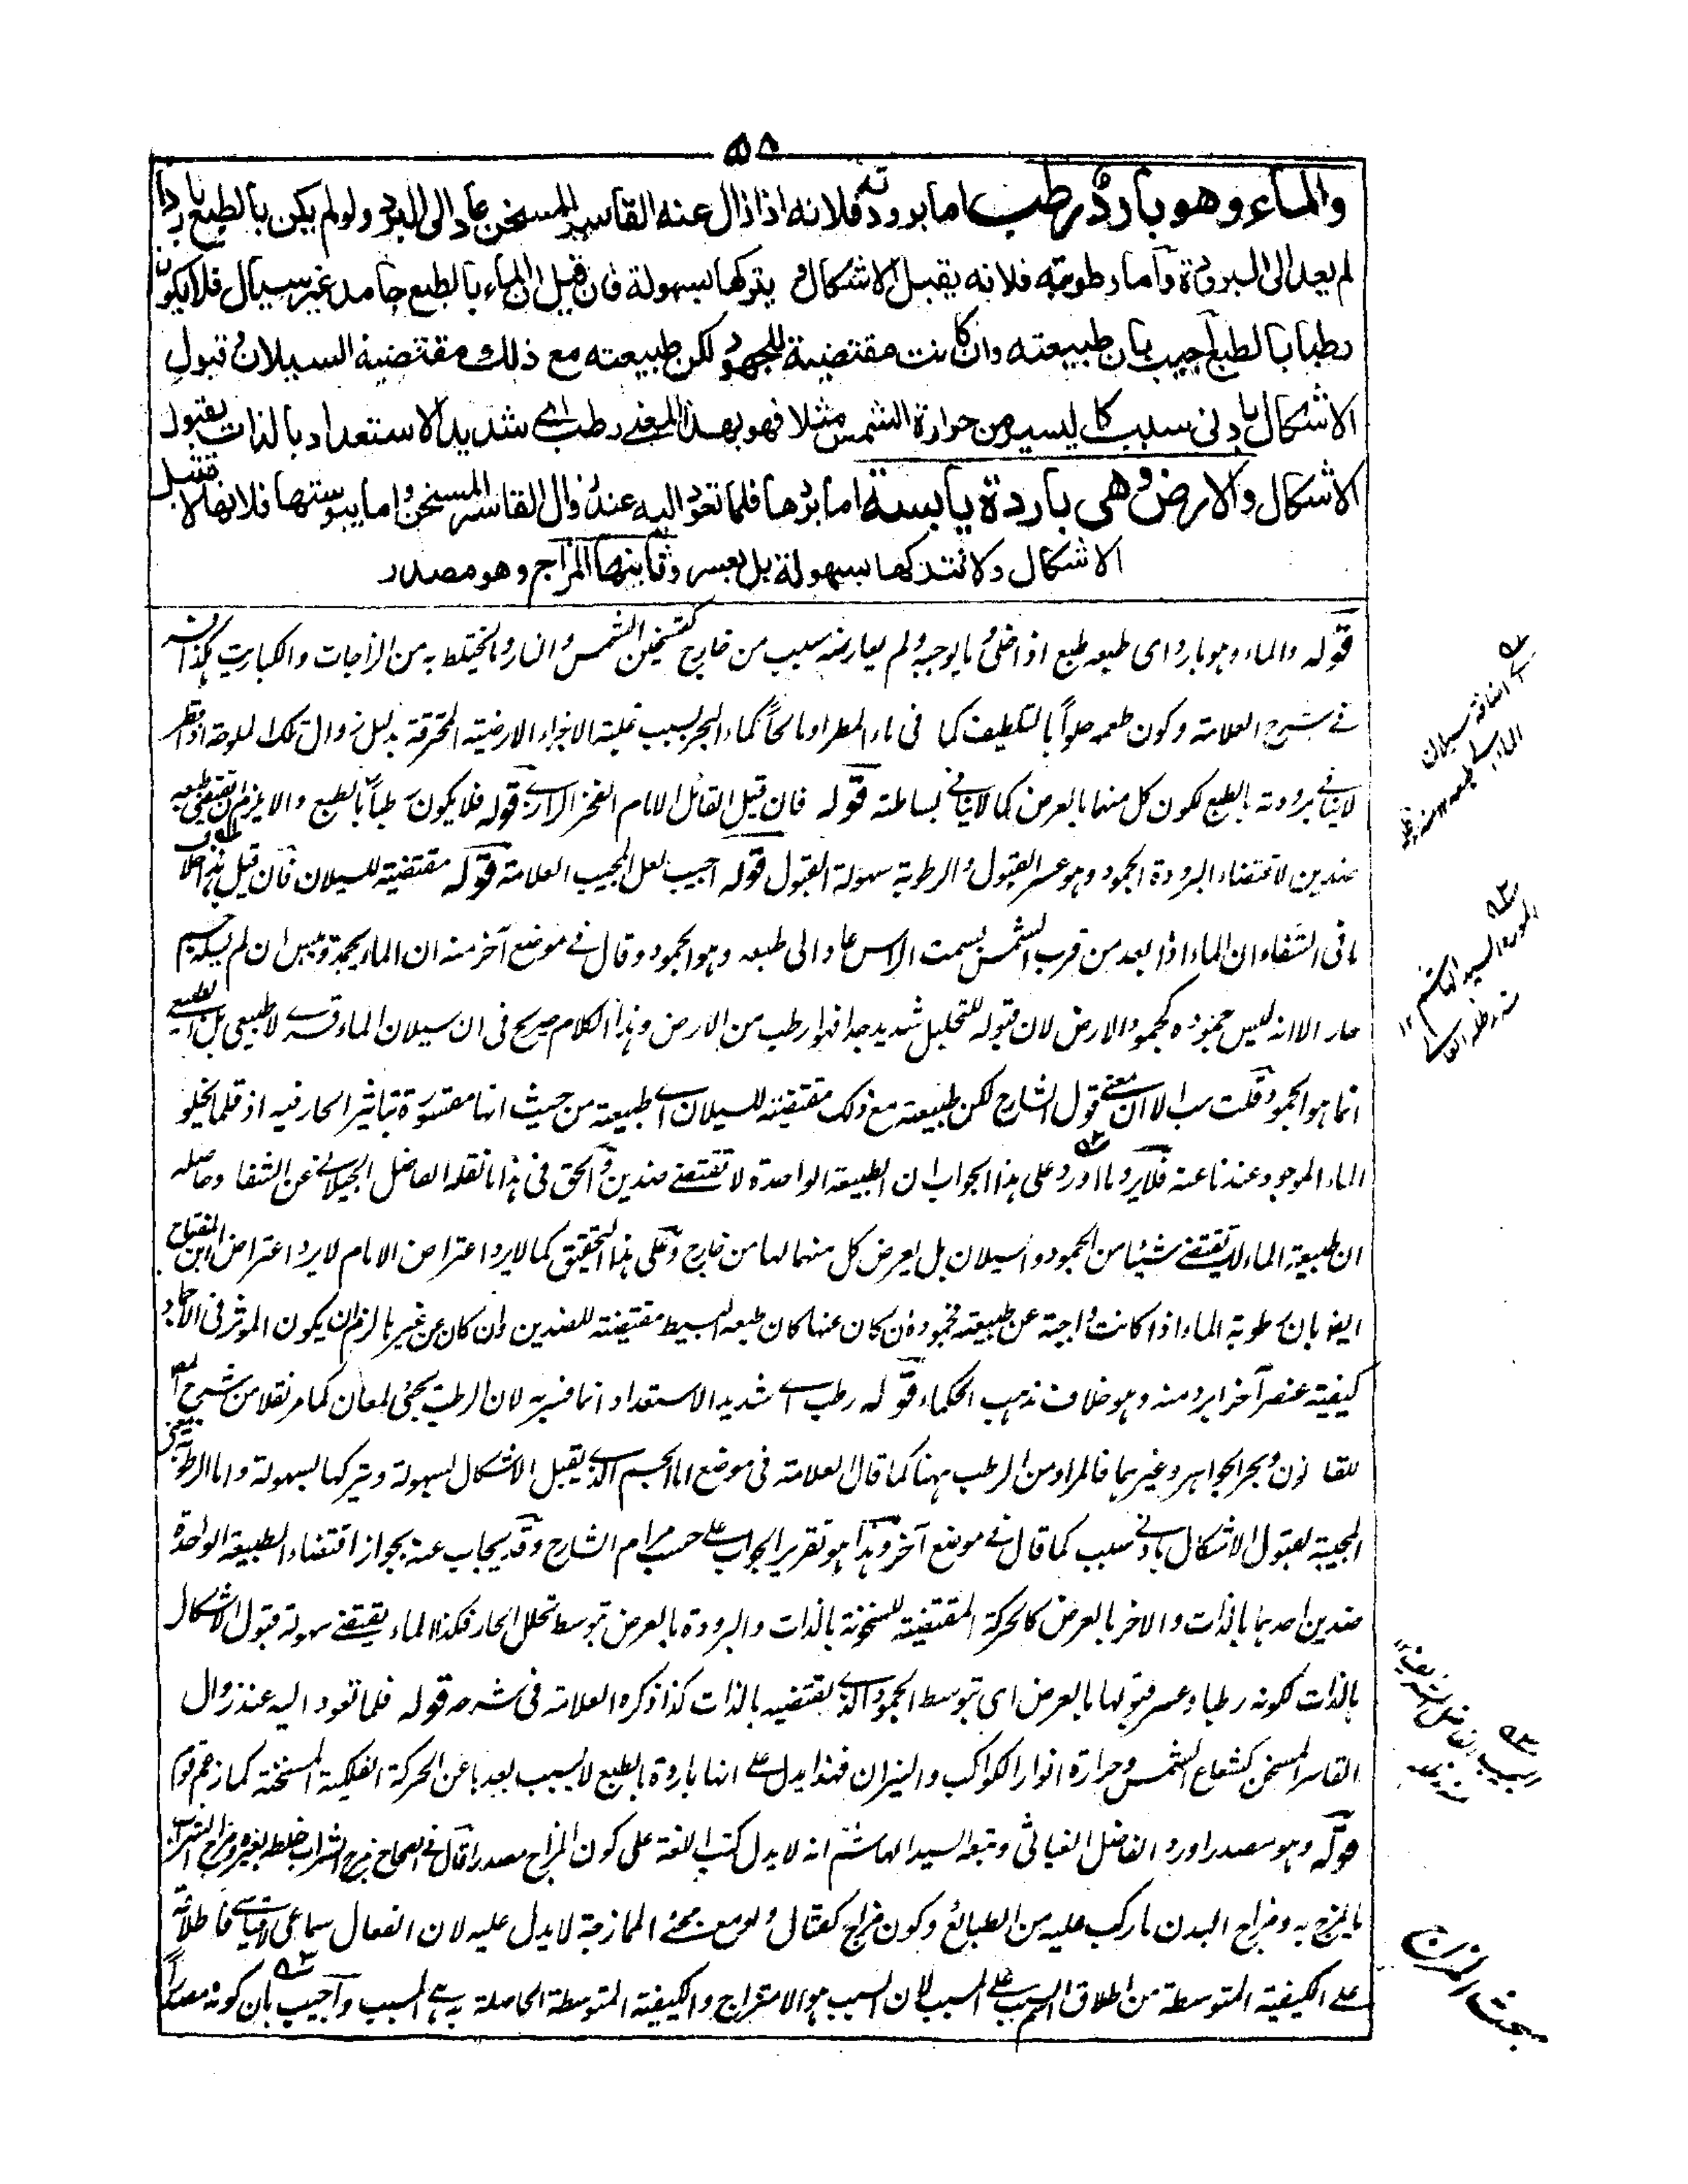 ٥٥
والماء وهو بارد رطب اما برودته فلانه اذا زال عنه القاسر المسخن عاد الى البرد ولو لم يكن بالطبع باردا
لم يعد الى البرودة واما رطوبته فلانه يقبل الاشكال و يتركها بسهولة فان قيل ان الماء بالطبع جامد غير سيال فلا يكون
رطبا بالطبع اجيب بان طبيعته وان كانت مقتضية للجمود لكن طبيعته مع ذلك مقتضية السيلان و قبول
الاشكال بادنى سبب كاليسير من حرارة الشمس مثلا فهو بهذا المعنے رطب اے شديد الاستعداد بالذات بقبول
الاشكال والارض وهى باردة يابسة اما بردها فلما تعود اليه عند زوال القاسر المسخن و اما يبوستها فلانها لا تقبل
الاشكال ولا تتركها بسهولة بل بعسر وثانيها المزاج وهو مصدر
قوله والماء وهو بارد اى طبعه طبع اذا خلى و ما يوجبه ولم يعارضه سبب من خارج كتسخين الشمس والنار و ما يختلط به من الزاجات والكباريت هكذا فسر
فے شرح العلامة وكون طعمه حلواً بالتلطيف كما فى ماء المطر او مالحاً كماء البحر بسبب غلبة الاجزاء الارضية المحترقة بدليل زوال تلك الملوحة اذا قطر
لا ينافے برودته بالطبع لكون كل منهما بالعرض كما لا ينافے بساطته قوله فان قيل القائل الامام الفخر الرازے قوله فلا يكون رطباً بالطبع والا يلزم ان يقتضى طبعه
ضدين لاقتضاء البرودة الجمود وهو عسر القبول و الرطوبة سهولة القبول قوله اجيب لعل المجيب العلامة قوله مقتضية للسيلان فان قيل هذا خلاف
ما فى الشفاء ان الماء اذا بعد من قرب الشمس بسمت الراس عاد الى طبعه وهو الجمود وقال فے موضع آخر منه ان الماء يجمد و يبس ان لم يسله جسم
حار الا انه ليس جموده كجمود الارض لان قبوله للتحليل شديد جدا فهو ارطب من الارض وهذا الكلام صريح فى ان سيلان الماء قسرے لا طبيعى بل الطبيعے
انما هو الجمود قلت معنے قول الشارح لكن طبيعته مع ذلك مقتضية للسيلان اے طبيعته من حيث انها مقسورة بتاثير الحار فيه اذ قلما يخلو
الماء الموجود عندنا عنه فلا يرد ما اورد على هذا الجواب ان الطبيعة الواحدة لا تقتضے ضدين و الحق فى هذا ما نقله الفاضل الجيلانے عن الشفا وحاصله
ان طبيعة الماء لا يقتضے شيئا من الجمود والسيلان بل يعرض كل منهما لها من خارج وعلى هذا التحقيق كما لا يرد اعتراض الامام لا يرد اعتراض ابن المفتاح
ايضا بان رطوبة الماء اذا كانت واجبة عن طبيعته فجموده ان كان عنها كان طبعه البسيط مقتضية للضدين وان كان عن غيرها لزم ان يكون الموثر فى الاجماد
كيفية عنصر آخر ابرد منه وهو خلاف مذهب الحكماء قوله رطب اے شديد الاستعداد انما فسر به لان الرطب يجئ لمعان كما مر نقلا من شرح
للقانون وبحر الجواهر وغيرهما فالمراد من الرطب ههنا كما قال العلامة فى موضع اما الجسم الذے يقبل الاشكال بسهولة ويتركها بسهولة واما الرطوبة
المجيبة لقبول الاشكال بادنے سبب كما قال فے موضع آخر وهذا هو تقرير الجواب علے حسب مرام الشارح وقد يجاب عنه بجواز اقتضاء الطبيعة الواحدة
ضدين احدهما بالذات والاخر بالعرض كالحركة المقتضية للسخونة بالذات والبرودة بالعرض بتوسط تحلل الحار فكذا الماء يقتضے سهولة قبول الاشكال
بالذات لكونه رطبا وعسر قبولها بالعرض اى بتوسط الجمود الذے يقتضيه بالذات كذا ذكره العلامة فى شرحه قوله فلما تعود اليه عند زوال
القاسر المسخن كشعاع الشمس وحرارة انوار الكواكب والنيران فهذا يدل علے انها باردة بالطبع لا بسبب بعدها عن الحركة الفلكية المسخنة كما زعم قوم
قوله وهو مصدر اورد الفاضل الغياثى وتبعه السيد الهاشم انه لا يدل كتب اللغة على كون المزاج مصدرا قال فے الصحاح مزج الشراب خلطه بغيره و مزاج الشراب
ما يمزج به ومزاج البدن ما ركب عليه من الطبائع وكون مزاج كقتال و لو مع مجئ الممازجة لا يدل عليه لان الفعال سماعى لا قياسے فاطلاقه
علے الكيفية المتوسطة من اطلاق السبب علے المسبب لان السبب هو الامتزاج والكيفية المتوسطة الحاصلة به هے المسبب واجيب بان كونه مصدراً